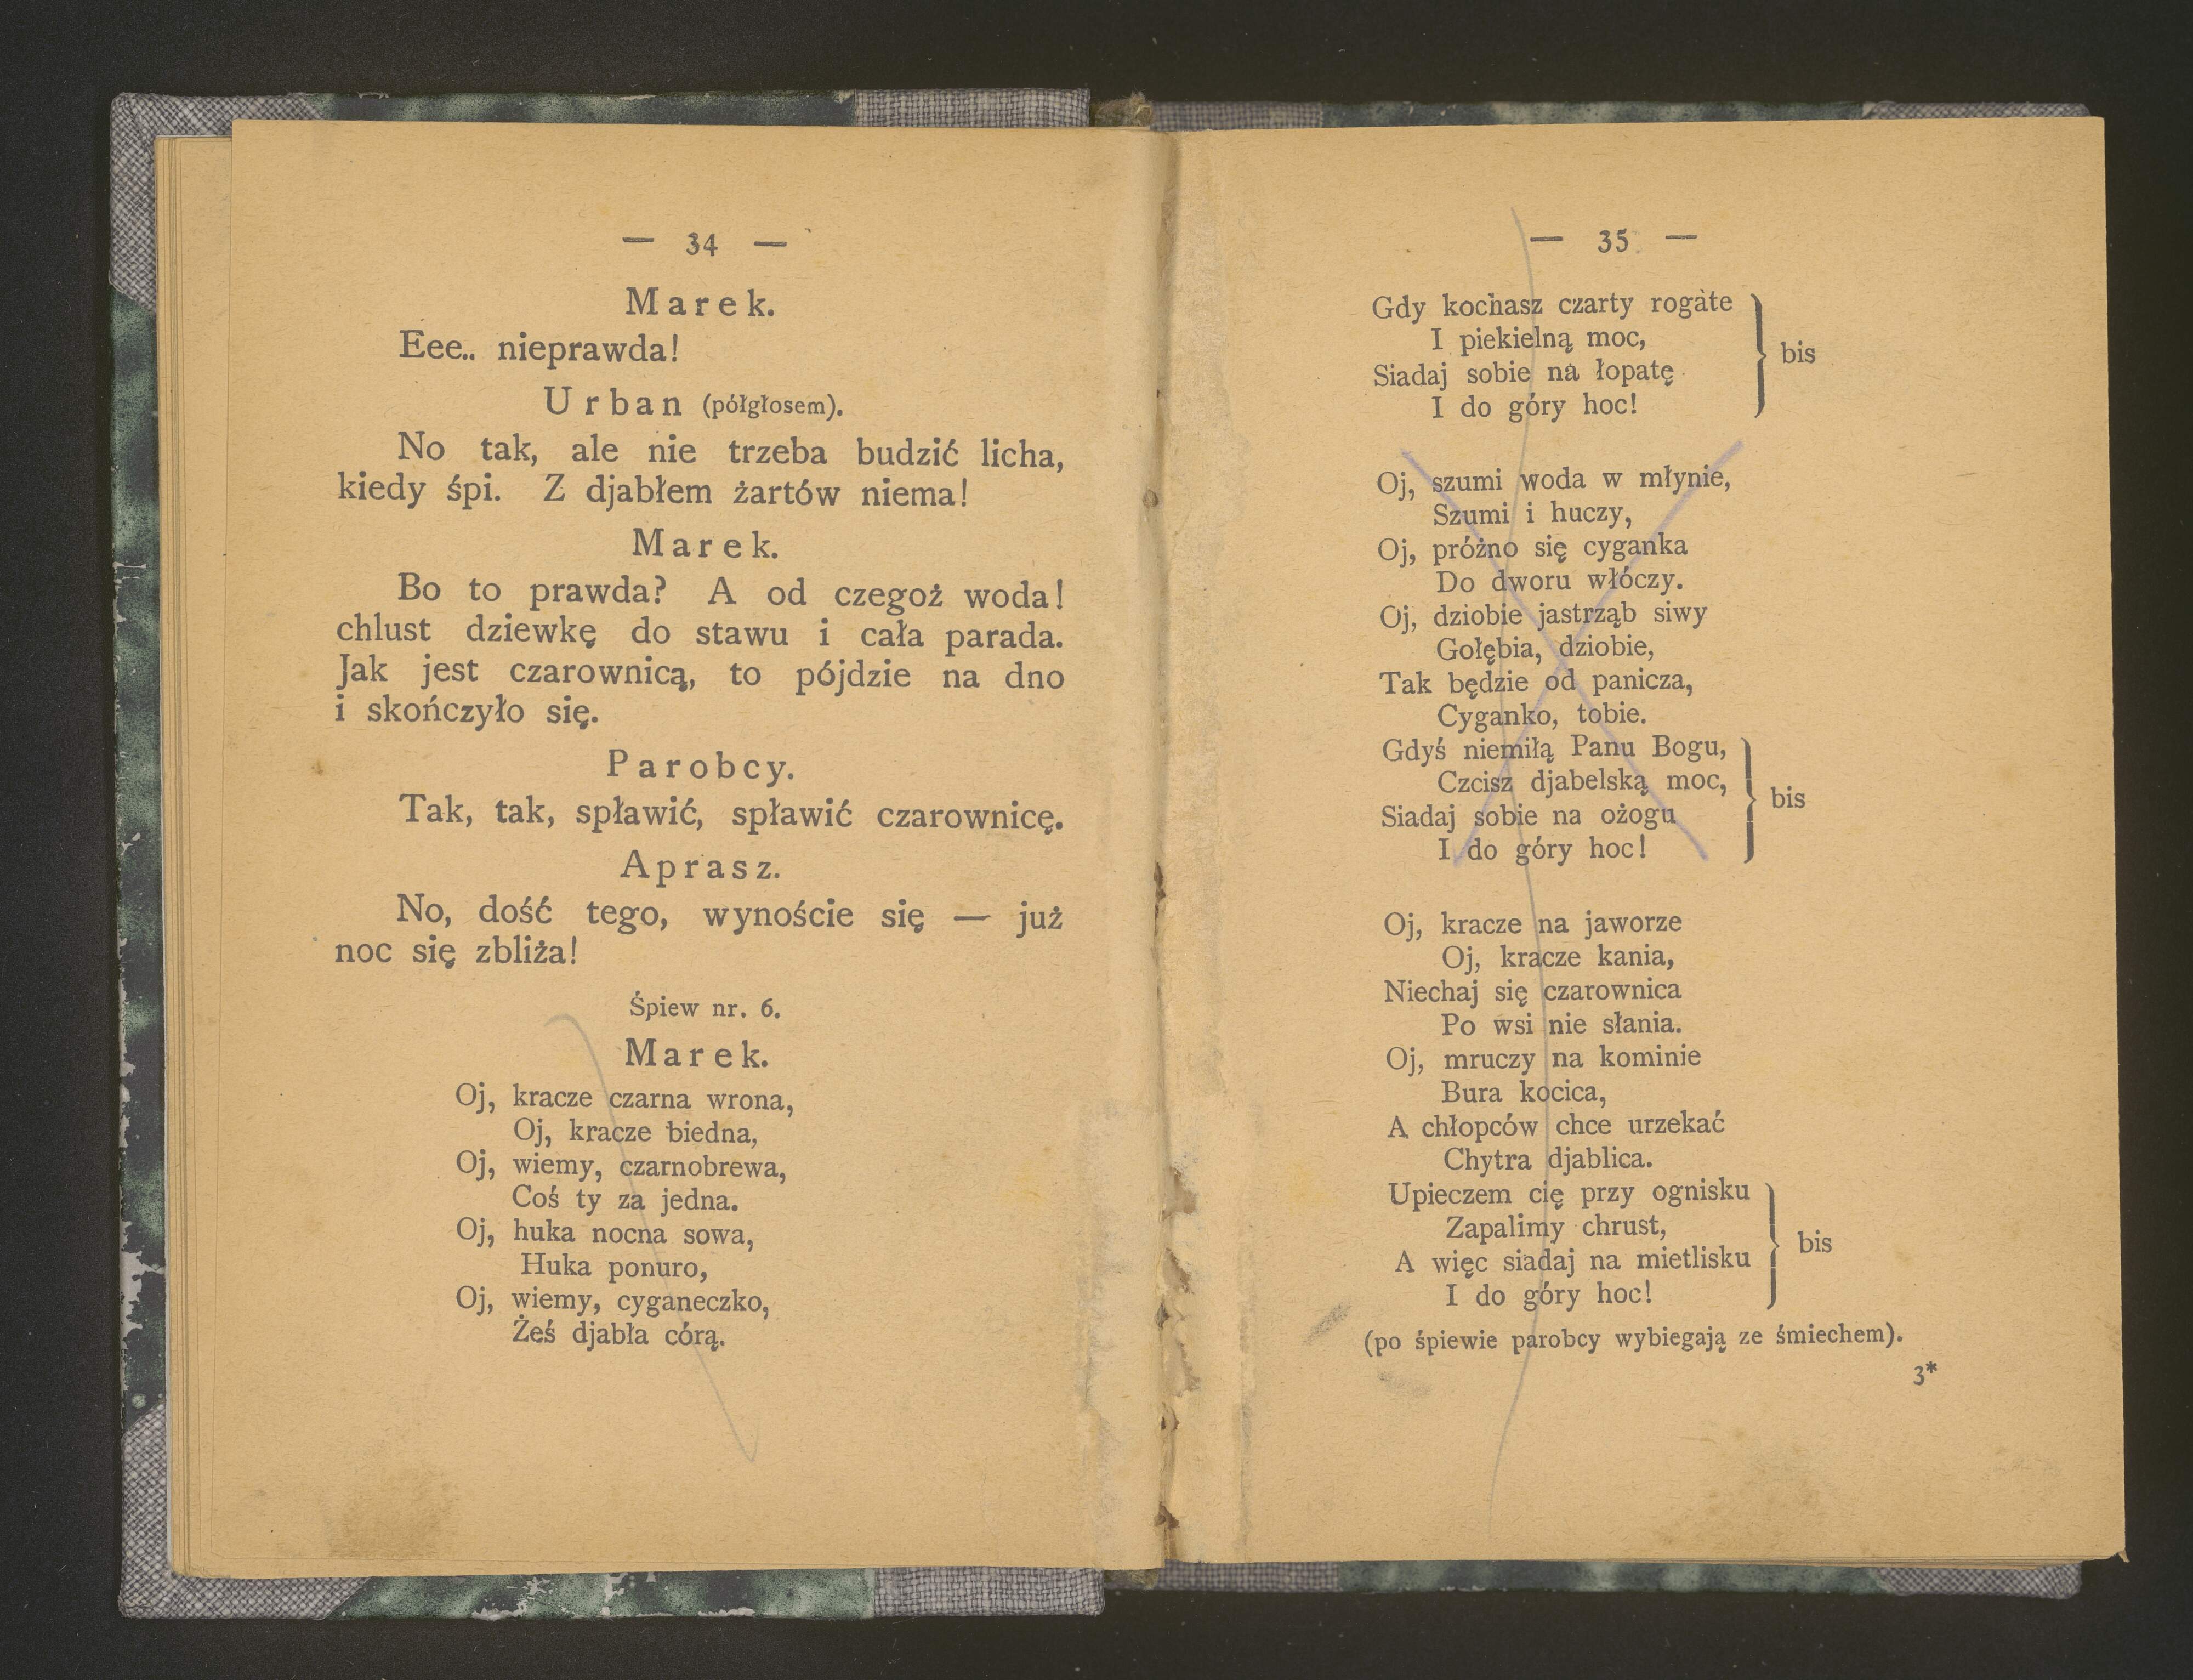 — 34 —
Marek.
Eee.. nieprawda!
Urban (półgłosem).
No tak, ale nie trzeba budzić licha,
kiedy śpi. Z djabłem żartów niema!
Marek.
Bo to prawda? A od czegoż woda!
chlust dziewkę do stawu i cała parada.
Jak jest czarownicą, to pójdzie na dno
i skończyło się.
Parobcy.
Tak, tak, spławić, spławić czarownicę.
Aprasz.
No, dość tego, wynoście się — już
noc się zbliża!
Śpiew nr. 6.
Marek.
Oj, kracze czarna wrona,
Oj, kracze biedna,
Oj, wiemy, czarnobrewa,
Coś ty za jedna.
Oj, huka nocna sowa,
Huka ponuro,
Oj, wiemy, cyganeczko,
Żeś djabła córą.
— 35 —
Gdy kochasz czarty rogate
I piekielną moc,
Siadaj sobie na łopatę
I do góry hoc!
bis
Oj, szumi woda w młynie,
Szumi i huczy,
Oj, próżno się cyganka
Do dworu włóczy.
Oj, dziobie jastrząb siwy
Gołębia, dziobie,
Tak będzie od panicza,
Cyganko, tobie.
Gdyś niemiłą Panu Bogu,
Czcisz djabelską moc,
Siadaj sobie na ożogu
I do góry hoc!
bis
Oj, kracze na jaworze
Oj, kracze kania,
Niechaj się czarownica
Po wsi nie słania.
Oj, mruczy na kominie
Bura kocica,
A chłopców chce urzekać
Chytra djablica.
Upieczem cię przy ognisku
Zapalimy chrust,
A więc siadaj na mietlisku
I do góry hoc!
bis
(po śpiewie parobcy wybiegają ze śmiechem).
3*